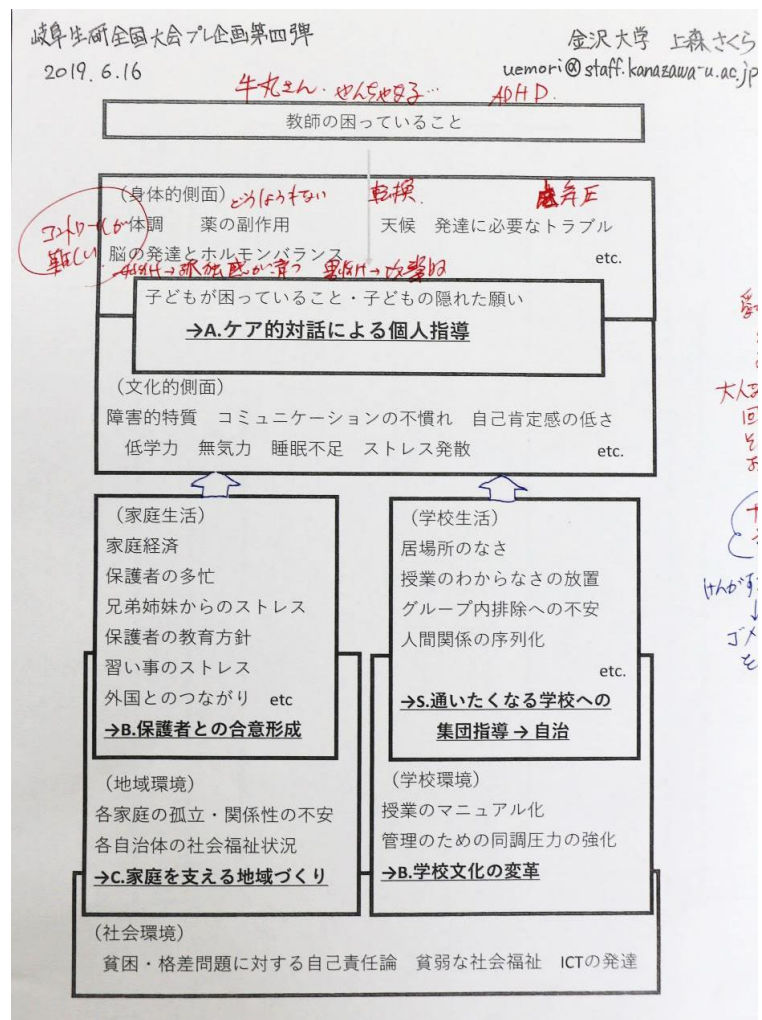 岐阜生研全国大会プレ企画第四弾
金沢大学 上森さくら
2019.6.16
uemori@staff.kanazawa-u.ac.jp
牛丸さん・やんちゃ女子… ADHD
教師の困っていること
(身体的側面) どうしようもない 転換 弁圧
コントロールが難しい
体調 薬の副作用 天候 発達に必要なトラブル
脳の発達とホルモンバランス etc.
孤独感が育つ
子どもが困っていること・子どもの隠れた願い
→A.ケア的対話による個人指導
(文化的側面)
障害的特質 コミュニケーションの不慣れ 自己肯定感の低さ
低学力 無気力 睡眠不足 ストレス発散 etc.
(家庭生活)
家庭経済
保護者の多忙
兄弟姉妹からのストレス
保護者の教育方針
習い事のストレス
外国とのつながり etc
→B.保護者との合意形成
(学校生活)
居場所のなさ
授業のわからなさの放置
グループ内排除への不安
人間関係の序列化
etc.
→S.通いたくなる学校への
集団指導 → 自治
(地域環境)
各家庭の孤立・関係性の不安
各自治体の社会福祉状況
→C.家庭を支える地域づくり
(学校環境)
授業のマニュアル化
管理のための同調圧力の強化
→B.学校文化の変革
(社会環境)
貧困・格差問題に対する自己責任論 貧弱な社会福祉 ICTの発達
大人